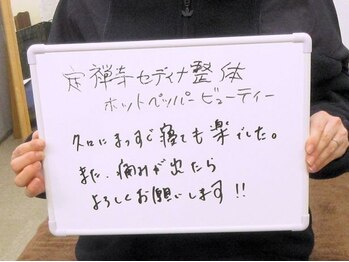 定禅寺セディナ整体
ホットペッパービューティー
久々にまっすぐ寝ても楽でした。
また、痛みが出たら
よろしくお願いします!!